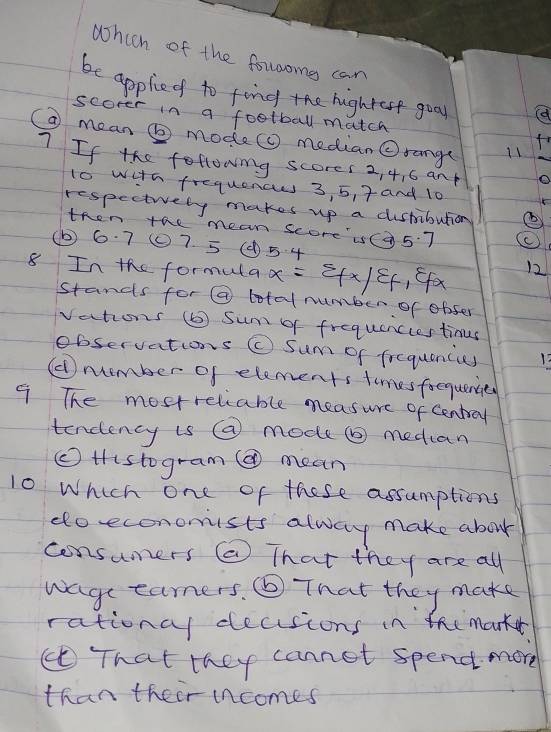 Which of the following can
be applied to find the highest goal
scorer in a football match
(a) mean (b) mode (c) median (c) range
7 If the following scores 2,4,6 and
10 with frequencies 3,5,7 and 10
respectively makes up a distribution
then the mean score is (a) 5.7
(b) 6.7 (c) 7.5 (d) 5.4
8 In the formula x = Σfx/Σf, Σfx
stands for (a) total number of obser
vations (b) sum of frequencies times
observations (c) sum of frequencies
(d) number of elements times frequencies
9 The most reliable measure of central
tendency is (a) mode (b) median
(c) Histogram (d) mean
10 Which one of these assumptions
do economists alway make about
consumers (a) That they are all
wage earners. (b) That they make
rational decisions in the market.
(c) That they cannot spend more
than their incomes
11
12